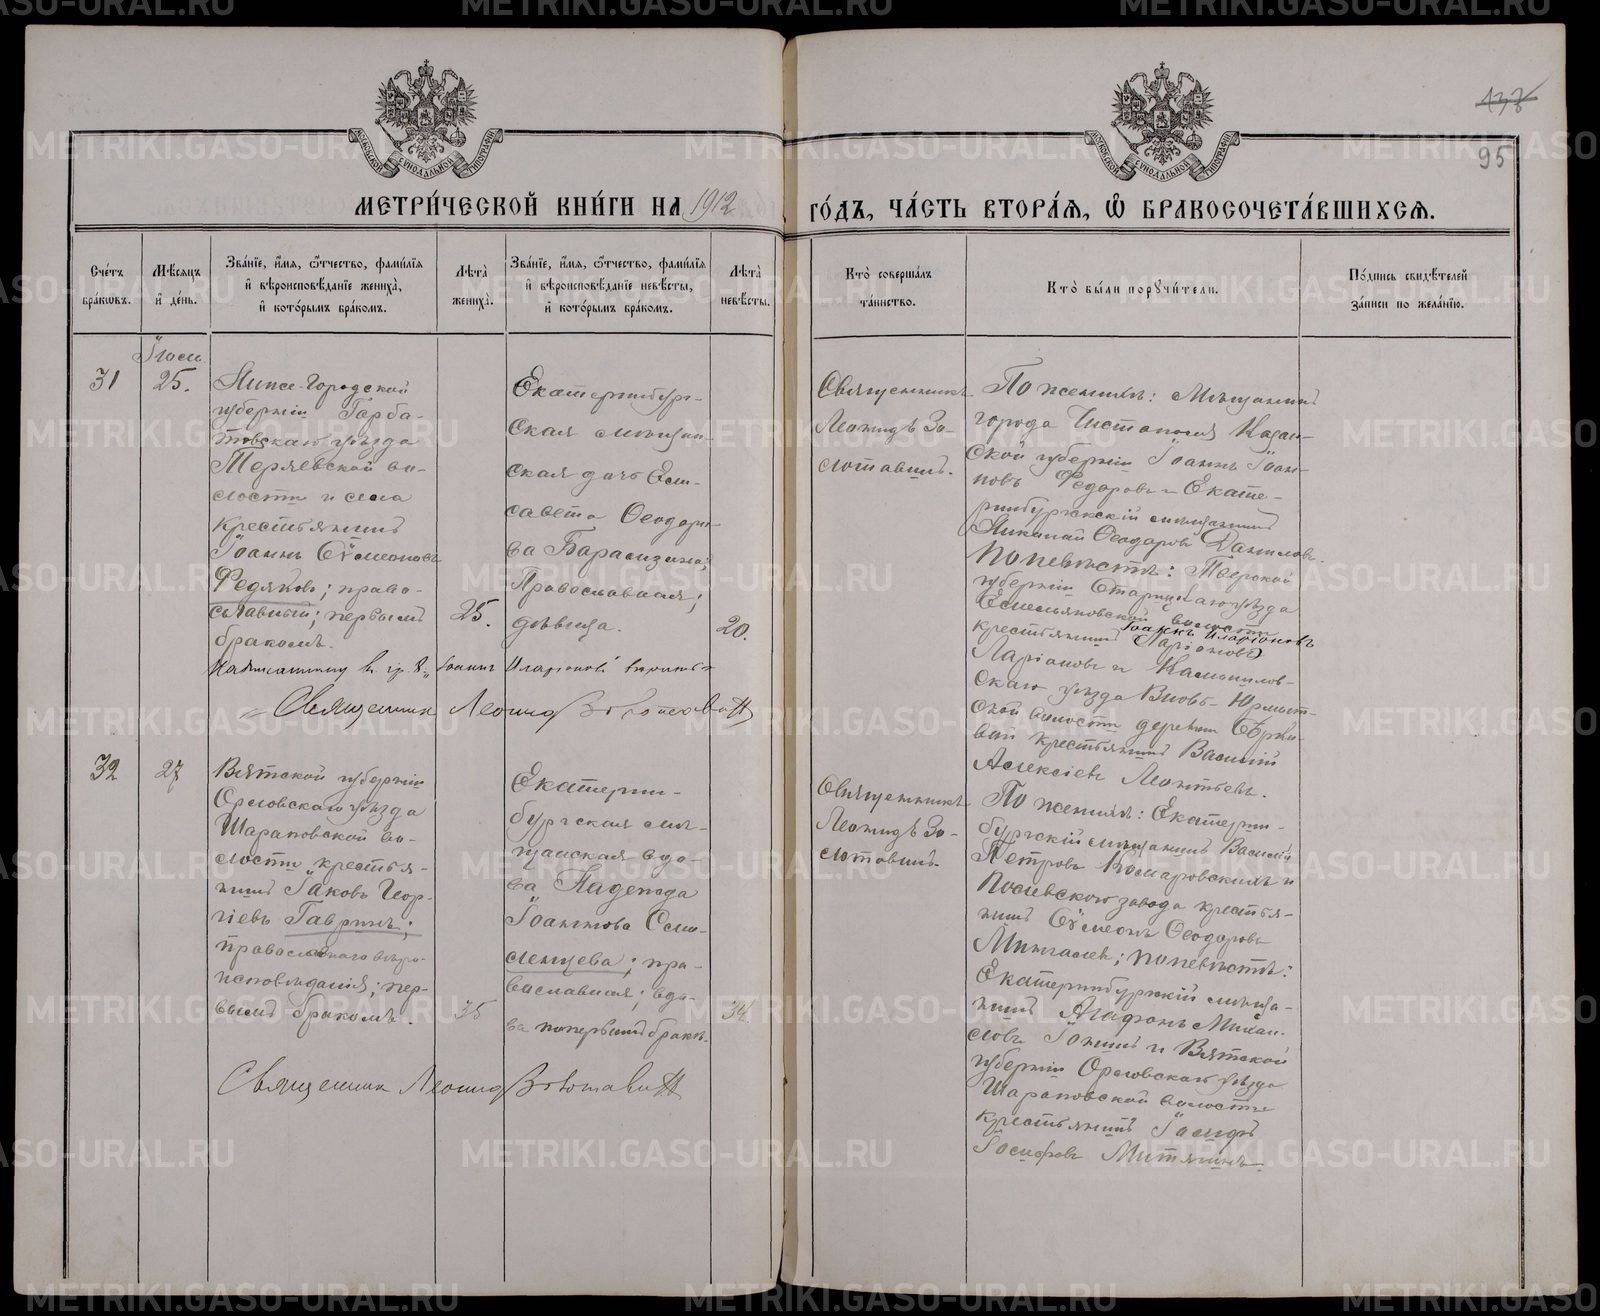 137
95
МЕТРИ́ЧЕСКОЙ КНИ́ГИ НА 1912
ГО́ДЪ, ЧА́СТЬ ВТОРА́Я, Ѡ БРАКОСОЧЕТА́ВШИХСЯ.
Сче́тъ браковъ.
Мѣсяцъ и́ де́нь.
Зва́нїе, и́мя, ѻ́тчество, фами́лїя и́ вѣроисповѣ́данїе жениха̀, и́ кото́рымъ бра́комъ.
Лѣта̀ жениха̀.
Зва́нїе, и́мя, ѻ́тчество, фами́лїя и́ вѣроисповѣ́данїе невѣ́сты, и́ кото́рымъ бра́комъ.
Лѣта̀ невѣ́сты.
Кто̀ соверша́лъ та́инство.
Кто̀ бы́ли порꙋчи́тели.
По́дпись свидѣ́телей за́писи по жела́нїю.
31
25.
Ниже-Городской
губернiи Горба-
товскаго уѣзда
волости и села
крестьянинъ
Іоаннъ Сѵмеоновъ
Федяковъ; право-
славный; первымъ
бракомъ.
25.
Екатеринбург-
ская мѣщан-
ская дочь Ели-
савета Ѳеодоро-
ва
Православная;
дѣвица.
20.
Священникъ
Леонидъ Зо-
лотавинъ.
По женихѣ: Мѣщанинъ
города Чистополя Казан-
ской губернiи Іоаннъ Іоан-
новъ Федоровъ и Екате-
ринбургскiй мѣщанинъ
Николай Ѳеодоровъ Даниловъ.
По невѣстѣ: Тверской
губернiи Старицкаго уѣзда
Емельяновской волости
крестьянинъ Іоаннъ Иларiоновъ
(Ларiоновъ)
Ларiоновъ и Камышлов-
скаго уѣзда Вновь-Юрмыт-
ской волости деревни
крестьянинъ Василiй
Алексѣевъ Леонтьевъ.
Написанному въ гр. Іоаннъ Иларiоновъ вѣрить
Священникъ Леонид Золотавин
32
27
Вятской губернiи
Орловскаго уѣзда
Шараповской во-
лости крестья-
нинъ Іаковъ Геор-
гiевъ Гавринъ;
православнаго вѣро-
исповѣданiя; пер-
вымъ бракомъ.
35
Екатерин-
бургская мѣ-
щанская вдо-
ва Надежда
Іоаннова
; пра-
вославная; вдо-
ва по первомъ бракѣ.
34
Священникъ
Леонидъ Зо-
лотавинъ.
По женихѣ: Екатерин-
бургскiй мѣщанинъ Василiй
Петровъ Комаровскихъ и
завода крестья-
нинъ Сѵмеонъ Ѳеодоровъ
; по невѣстѣ:
Екатеринбургскiй мѣща-
нинъ Агафонъ Михай-
ловъ и Вятской
губернiи Орловскаго уѣзда
Шараповской волости
крестьянинъ Іосифъ
Іосифовъ Митягинъ.
Священник Леонид Золотавин
METRIKI.GASO-URAL.RU